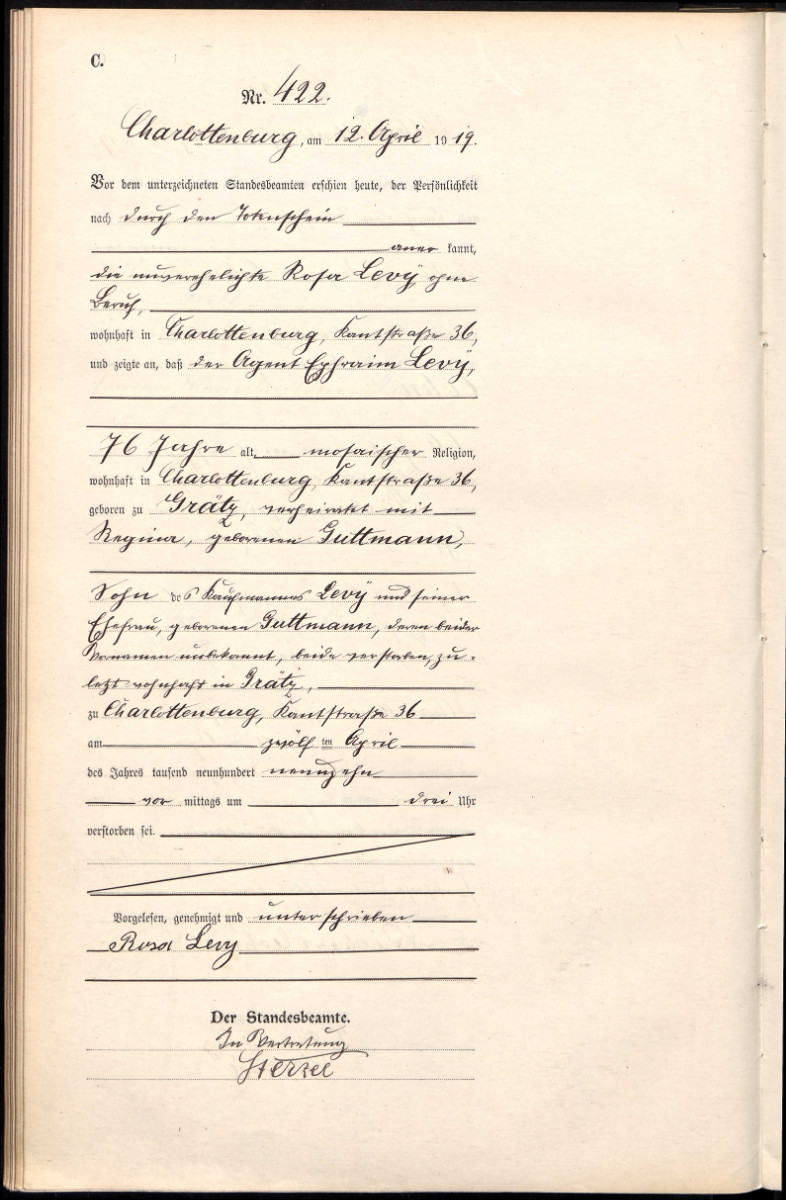 C.
Nr. 422.
Charlottenburg, am 12. April 1919.
Vor dem unterzeichneten Standesbeamten erschien heute, der Persönlichkeit
nach durch den Totenschein
aner kannt,
die unverehelichte Rosa Levy ohne
Beruf,
wohnhaft in Charlottenburg, Kantstraße 36,
und zeigte an, daß der Agent Ephraim Levy,
76 Jahre alt, mosaischer Religion,
wohnhaft in Charlottenburg, Kantstraße 36,
geboren zu Grätz, verheiratet mit
Regina, geborenen Guttmann,
Sohn des Kaufmannes Levy und seiner
Ehefrau, geborenen Guttmann, deren beider
Vornamen unbekannt, beide verstorben, zu-
letzt wohnhaft in Grätz,
zu Charlottenburg, Kantstraße 36
am zwölf ten April
des Jahres tausend neunhundert neunzehn
vor mittags um drei Uhr
verstorben sei.
Vorgelesen, genehmigt und unterschrieben
Rosa Levy
Der Standesbeamte.
In Vertretung